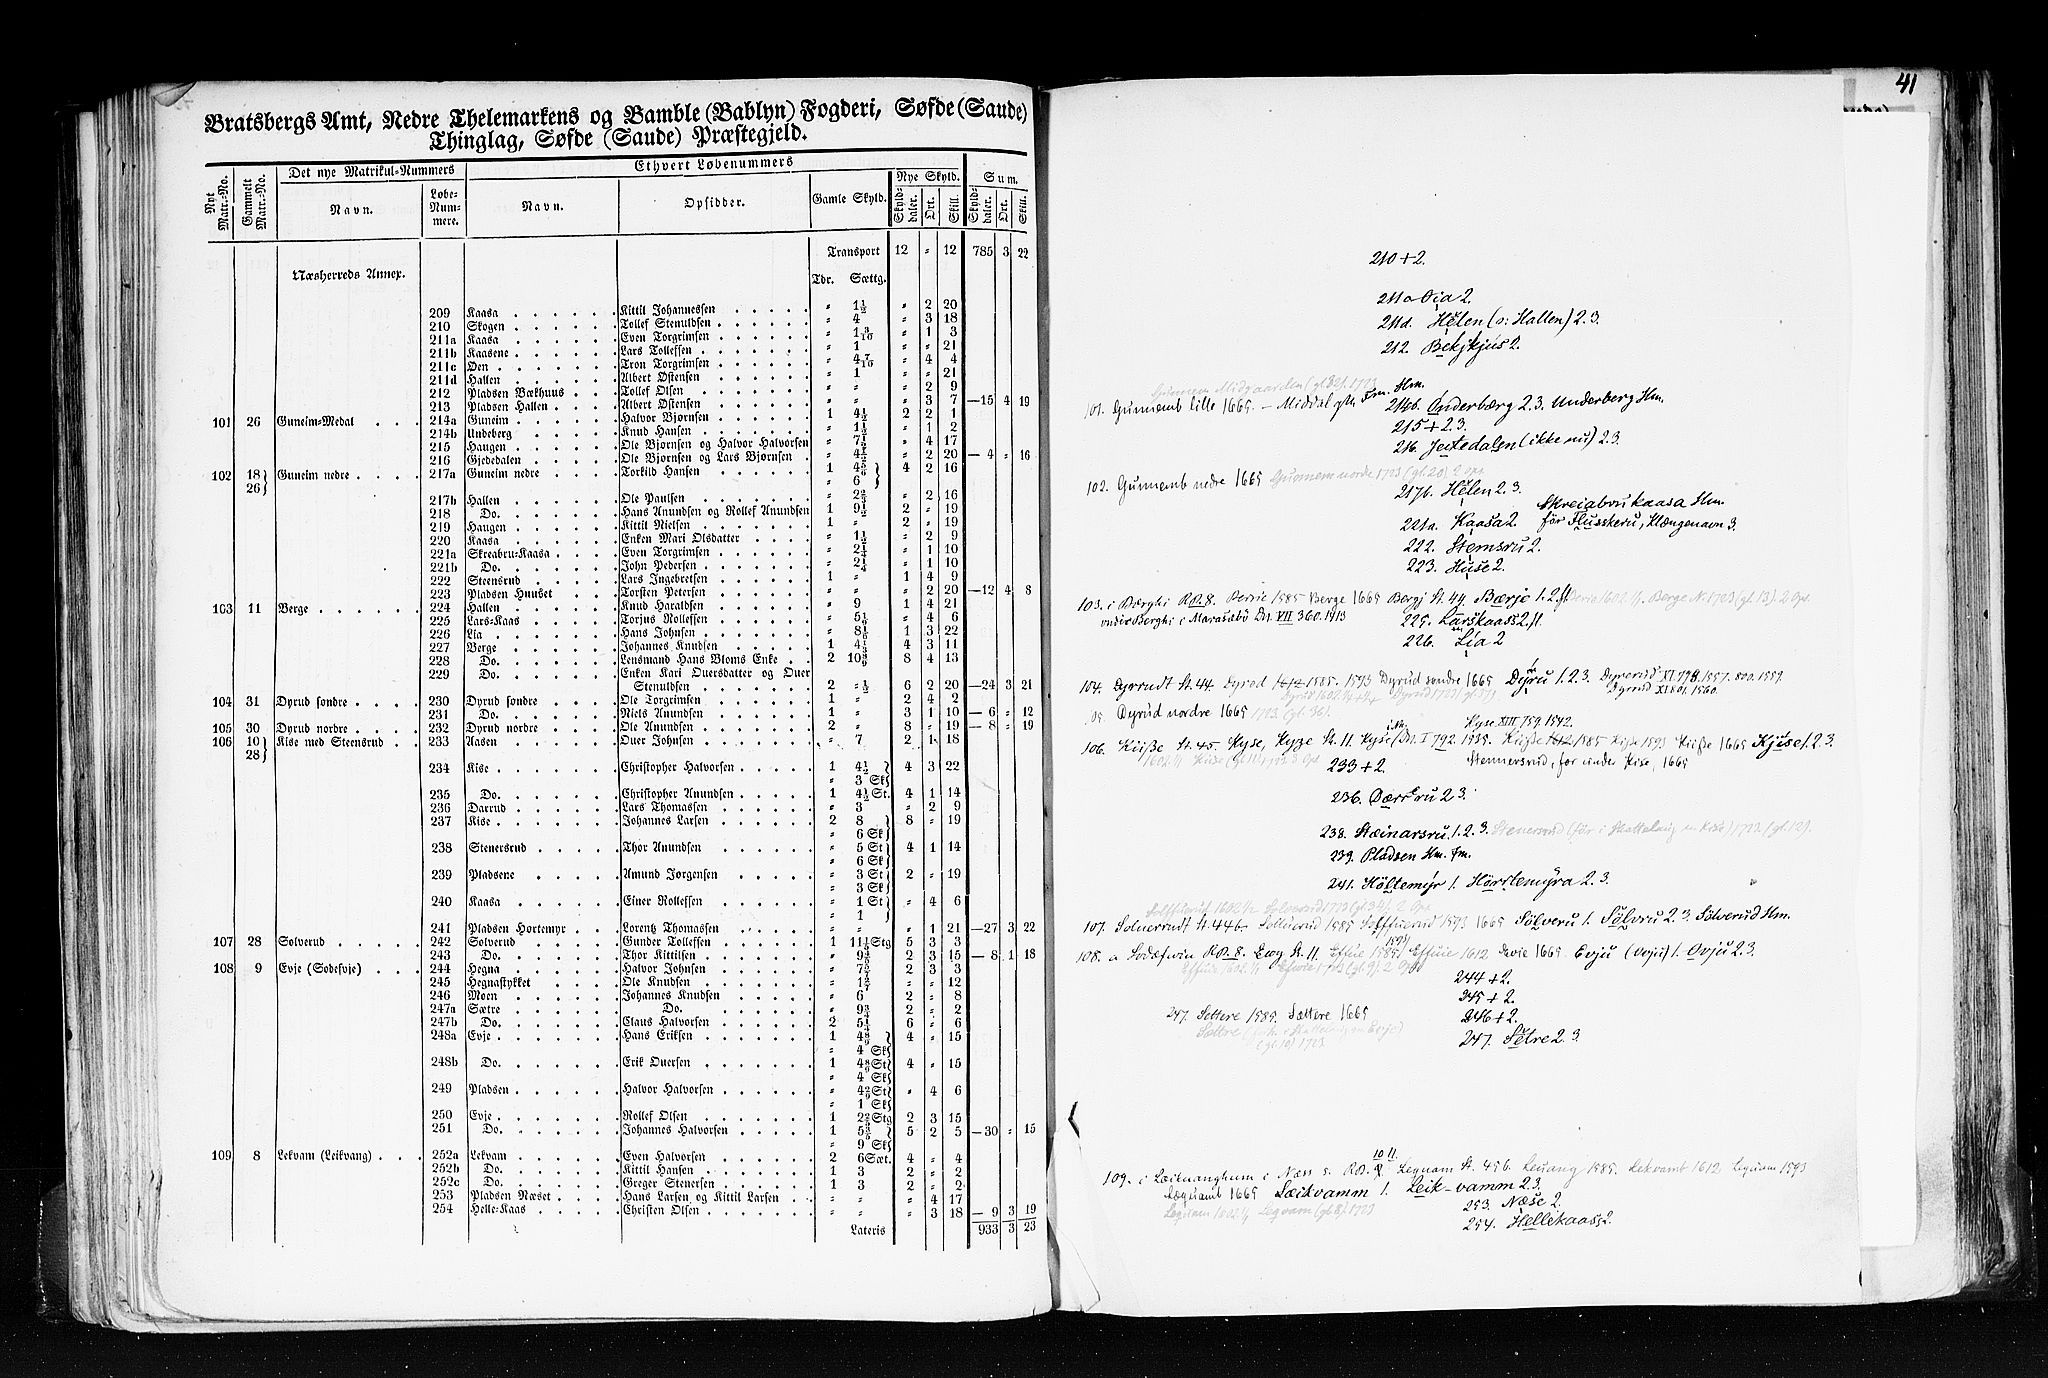 Bratsbergs Amt, Nedre Thelemarkens og Bamble (Bablyn) Fogderi, Søfde (Saude)
Thinglag, Søfde (Saude) Præstegjeld.
Nyt Matr.-No. Gammelt Matr.-No. Det nye Matrikul-Nummers Ethvert Løbenummers
Navn. Løbe-Nummere. Navn. Opsidder. Gamle Skyld. Nye Skyld. Sum.
Skylddaler. Ort. Skill. Skylddaler. Ort. Skill.
Transport 12 " 12 785 3 22
Næsherreds Annex. Tdr. Sættg.
209 Kaasa Kittil Johannessen " 1½ " 2 20
210 Skogen Tollef Stenuldsen " 4 " 3 18
211a Kaasa Even Torgrimsen " 1 3/10 " 1 3
211b Kaasene Lars Tollefsen " 1 " " 21
211c Øen Tron Torgrimsen " 4 7/10 " 4 4
211d Hallen Albert Østensen " 1 " " 21
212 Pladsen Bækhuus Tollef Olsen " 2 9
213 Pladsen Hallen Albert Østensen " 3 7 —15 4 19
101 26 Guneim-Medal 214a Guneim Halvor Bjørnsen 1 4½ 2 2 1
214b Undeberg Knud Hansen " 1½ " 1 2
215 Haugen Ole Bjørnsen og Halvor Halvorsen " 7½ " 4 17
216 Gjededalen Ole Bjørnsen og Lars Bjørnsen " 4½ " 2 20 — 4 " 16
102 18 26} Guneim nedre 217a Guneim nedre Torkild Hansen 1 4 5/6 } 4 2 16
" 6 }
217b Hallen Ole Paulsen " 2⅔ " 2 16
218 Do. Hans Anundsen og Rollef Anundsen 1 9½ 2 " 19
219 Haugen Kittil Nielsen 1 " 2 " 19
220 Kaasa Enken Mari Olsdatter " 1½ " 2 9
221a Skreabru-Kaasa Even Torgrimsen " 2¼ " 1 10
221b Do. John Pedersen " 2¼ " 1 10
222 Steensrud Lars Ingebretsen 1 " 1 4 9
223 Pladsen Huuset Torsten Petersen " " " 2 20 —12 4 8
103 11 Berge 224 Hallen Knud Haraldsen " 9 1 4 21
225 Lars-Kaas Torjus Rollefsen " 5 1/6 " 4 6
226 Lia Hans Johnsen " 8 1/6 1 3 22
227 Berge Johannes Knudsen 1 4⅓ 4 3 11
228 Do. Lensmand Hans Bloms Enke 2 10 8 4 13
229 Do. Enken Kari Ouersdatter og Ouer
Stenuldsen 2 " ½ 6 2 20 —24 3 21
104 31 Dyrud søndre 230 Dyrud søndre Ole Torgrimsen 1 " 2 4 2
231 Do. Niels Anundsen 1 " 3 1 10 — 6 " 12
105 30 Dyrud nordre 232 Dyrud nordre Ole Anundsen 2 " 8 " 19 — 8 " 19
106 10 28} Kise med Steensrud 233 Aasen Ouer Johnsen " 7 2 1 18
234 Kise Christopher Halvorsen 1 4½ } 4 3 22
" 3 Sk }
235 Do. Christopher Anundsen 1 4½ St. 4 1 14
236 Darrud Lars Thomassen " 3 " 2 9
237 Kise Johannes Larsen 2 8 } 8 " 19
" 6 Sk }
238 Stenersrud Thor Anundsen " 5 St } 4 1 14
" 6 Sk }
239 Pladsene Amund Jørgensen " 3 St } 2 " 19
" 3 Sk }
240 Kaasa Einer Rollefsen " 1 St } " 4 6
" 1 }
241 Pladsen Hortemyr Lorentz Thomassen " " " 1 21 —27 3 22
107 28 Solverud 242 Solverud Gunder Tollefsen 1 11 Stg 5 3 3
243 Do. Thor Kittilsen " 9 2 3 15 — 8 1 18
108 9 Evje (Sødefvje) 244 Hegna Halvor Johnsen " 7 2 3 3
245 Hegnastykket Ole Knudsen " 1 " " 12
246 Moen Johannes Knudsen " 6 2 " 8
247a Sætre Do. " 9¾ 2 " 2
247b Do. Claus Halvorsen 2 5¼ 6 " 6
248a Evje Hans Eriksen 1 4 8/9 } 4 " 15
" 4 Sk }
248b Do. Erik Ouersen 1 4 8/9 St } 4 " 15
" 4 Sk }
249 Pladsen Halvor Halvorsen " 4 St } " 4 6
" 1 Sk }
250 Evje Rollef Olsen 1 2 Stg 2 3 15
251 Do. Johannes Halvorsen 1 5 5 2 5 —30 " 15
" 9 Sk
109 8 Lekvam (Leikvang) 252a Lekvam Even Halvorsen 2 6 Sæt. 4 " 4
252b Do. Kittil Hansen 1 3 2 " 2
252c Do. Greger Stenersen 1 3 2 " 2
253 Pladsen Næset Hans Larsen og Kittil Larsen " " " 4 17
254 Helle-Kaas Christen Olsen " " " 3 18 — 9 3 19
Lateris 933 3 23
41
210 + 2.
211a Øia 2.
211d. Hélen (o: Hallen) 2. 3.
212. Bekjkjus 2.
Gunnem Midgaarden (gl. 32). 1723
101. Gunnemb lille 1665. — Middal gM. Fm. Hm.
214b. Onderbærg 2. 3. Underberg Hm.
215 + 2. 3.
216. Jeetedalen (ikke nu) 2. 3.
102. Gunnemb nedre 1665 Gunnem nordre 1723 (gl. 20) 2 opp.
217b. Hélen 2. 3.
Skreiabrukaasa Hm.
221a. Kaasa 2. før Flusskeru, Klængenavn 3.
222. Stemsru 2.
223. Huse 2.
103. i Bærghi RB. 8. Berrie 1585 Berge 1665 Bergj St. 44. Bærje 1. 2. fl. Berie 1602 1/1. Berge N. 1723 (gl. 13). 2 Op.
under Berghi i Marasubó Dn. VII 360. 1413
225. Larskaass 2. fl.
226. Lia 2
104. Dyrrudt St. 44. Dyrod 1612 1585. 1593 Dyrud søndre 1665 Dyru 1. 2. 3. Dyrerud XI. 798. 1557. 800. 1559.
Dyrud XI 801. 1560.
05. Dyrud nordre 1665 1723 (gl. 36).
Kyse XIII. 759. 1542.
106. Kiiße St. 45. Kyse, Kyze St. 11. Kyse (Dn. I 792. 1489. Kiiße 1612 1585 Kise 1593 Kiiße 1665 Kjise 1. 2. 3.
Stennersrud, før under Kise, 1665
233 + 2.
236. Dærrru 2 3.
238. Stæinarsru. 1. 2. 3. Stenersrud (før i Skattelaug m. Kise) 1723 (gl. 12).
239. Pladsen Hm. Fm.
241. Höltemyr 1. Hørtemyra 2. 3.
107. Soluerrudt St. 446. Solluerud 1585 Solffuerud 1593 1665 Sölveru 1. Sölvru 2. 3. Sølverud Hm.
108. a Sodæfwin RB. 8. Ewg St. 11 Effuie 1585. Effuie 1612 Evie 1665 Evju (Ovju) 1. Ovju 2. 3.
244 + 2.
245 + 2.
247. Settere 1585. Sættere 1665
246 + 2.
247. Sétre 2. 3.
(gl. 10) 1723
10 11.
109. i Læikuanghum i Næss s. RB. Leguam St. 456. Leuang 1585. Lekvamt 1612 Leguam 1593
Læguamt 1665 Læikvamm 1. Leik-vamm 2. 3.
Leguam 1602 1/1 Legvam (gl. 8). 1723
253. Næse 2.
254. Hellekaass 2.